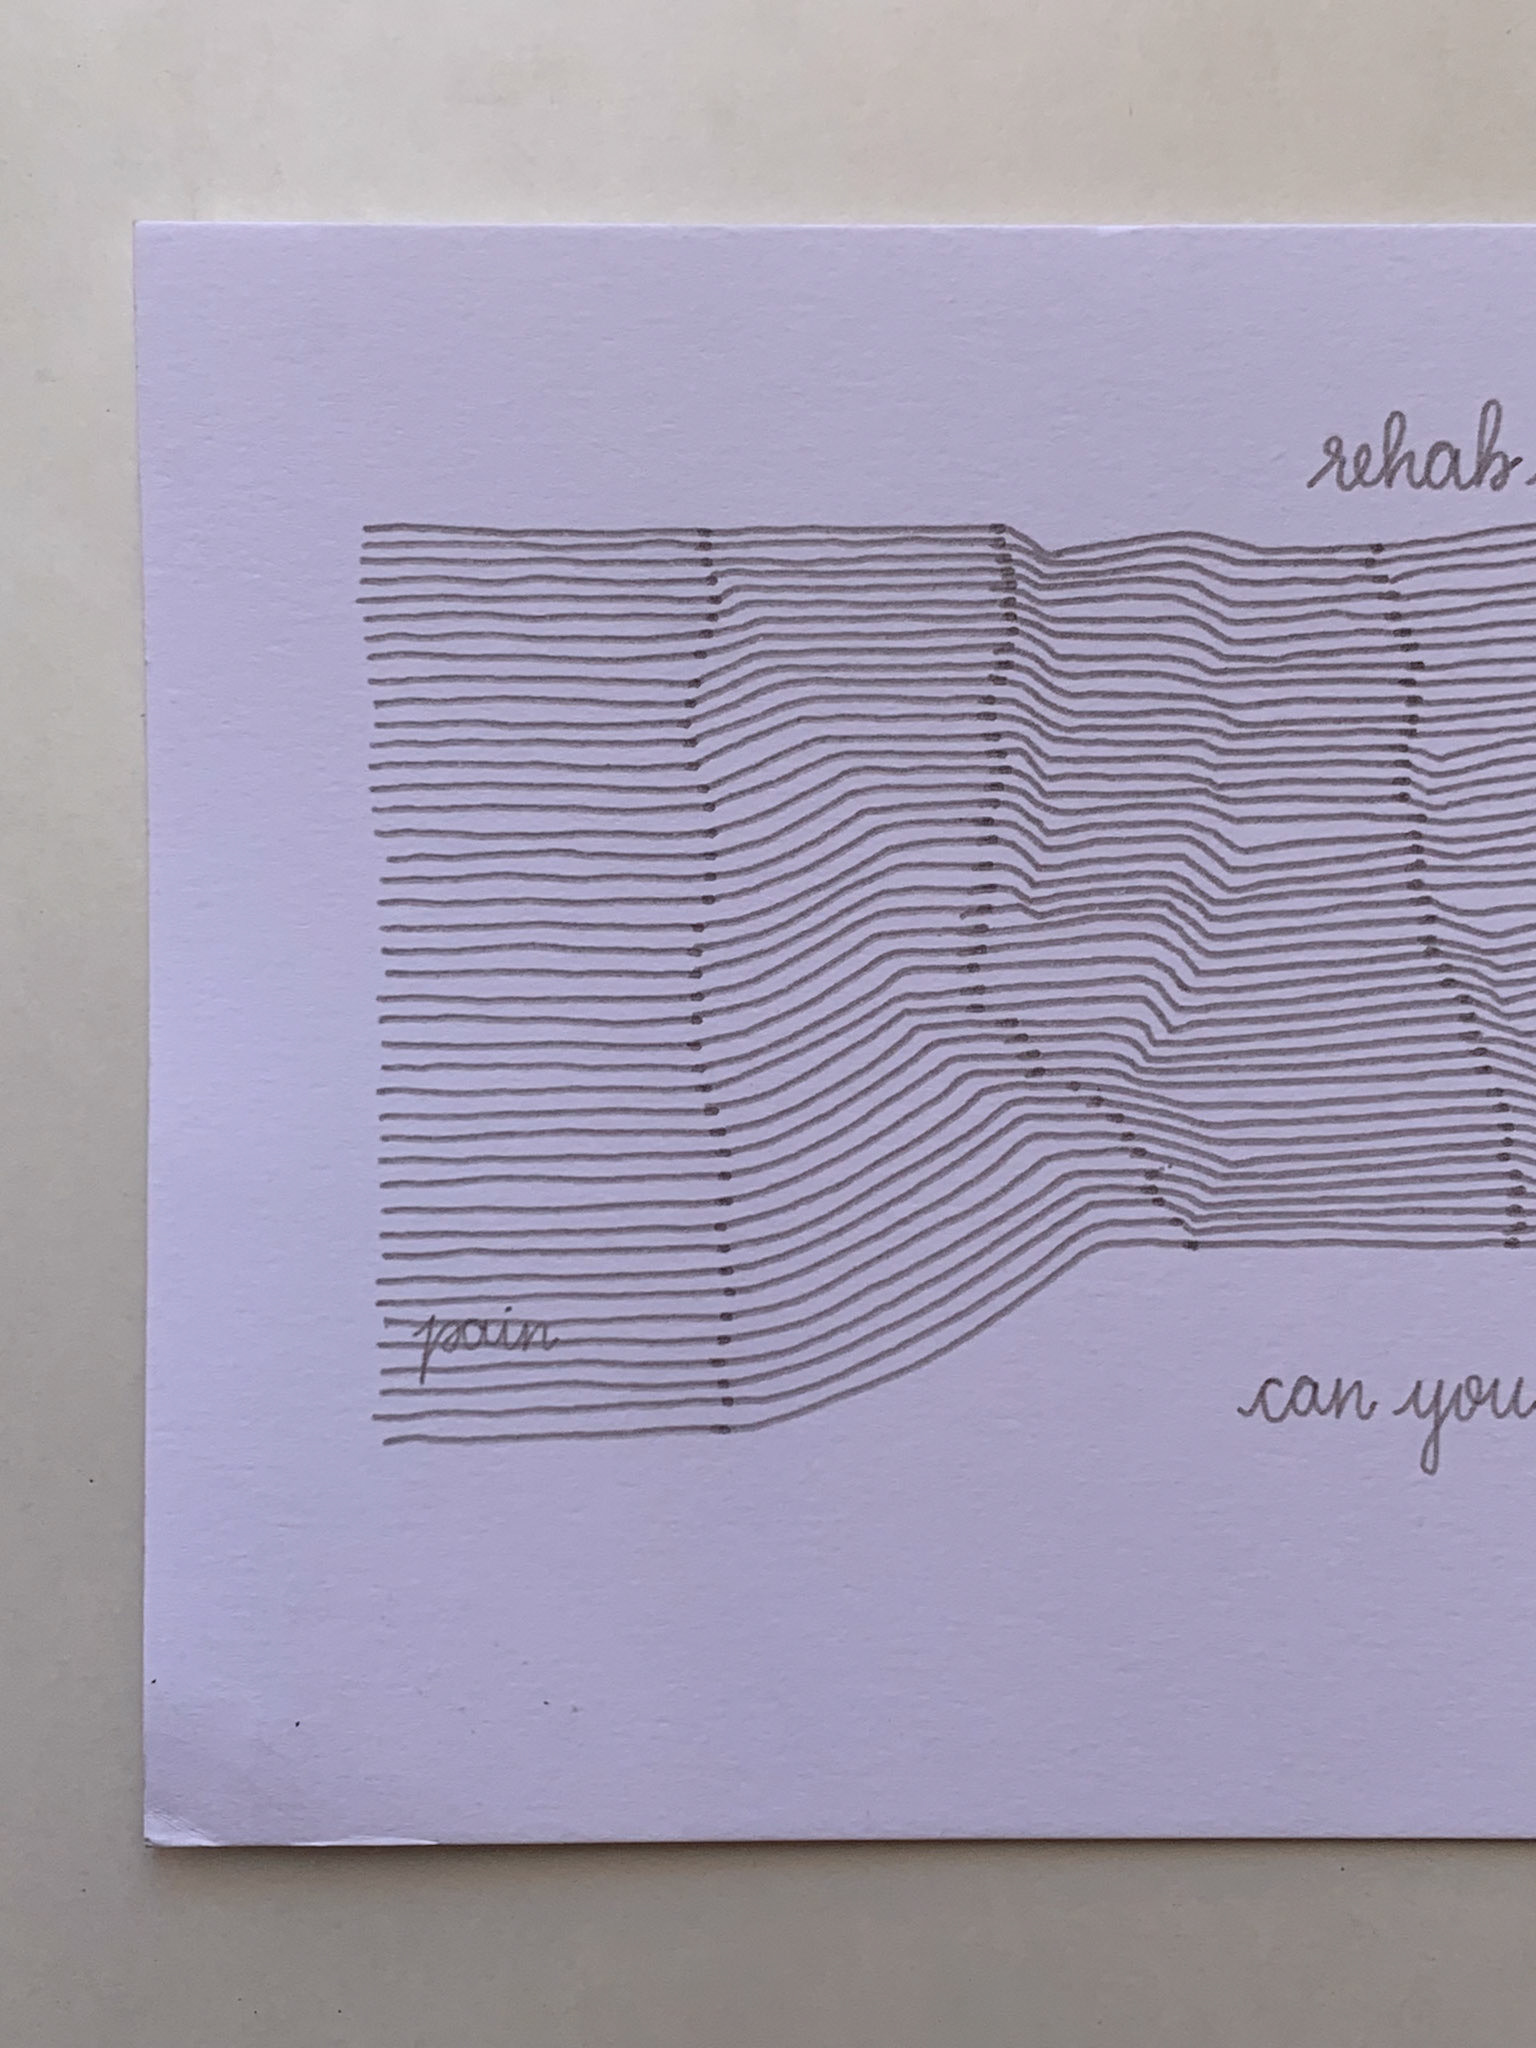 rehab
pain
can you